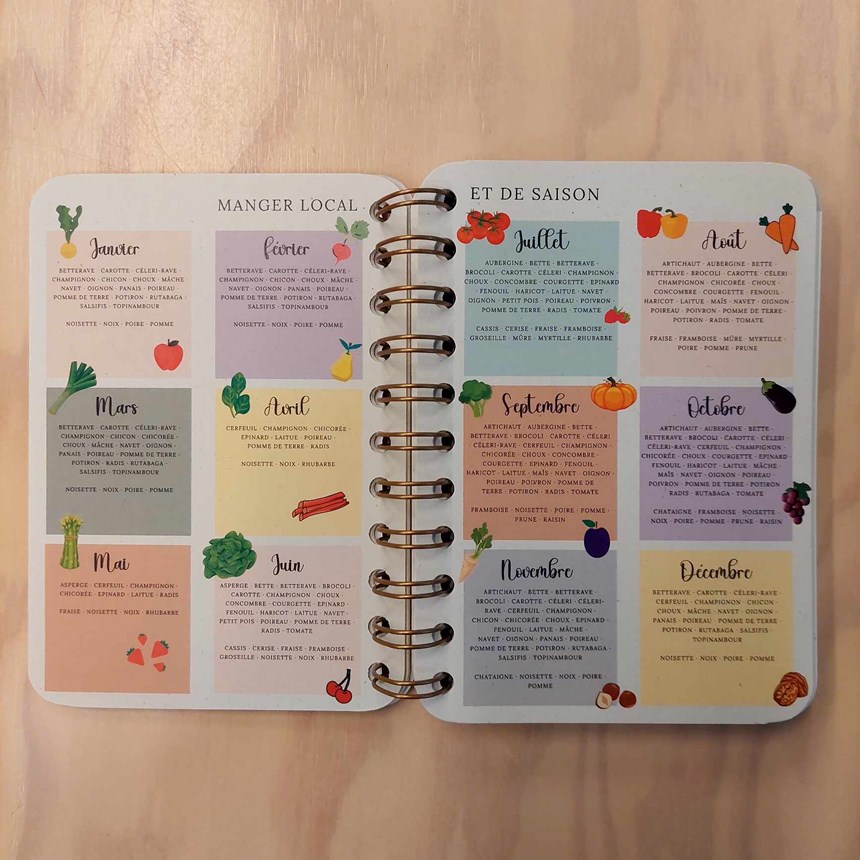 MANGER LOCAL
Janvier
BETTERAVE · CAROTTE · CÉLERI-RAVE ·
CHAMPIGNON · CHICON · CHOUX · MÂCHE ·
NAVET · OIGNON · PANAIS · POIREAU ·
POMME DE TERRE · POTIRON · RUTABAGA ·
SALSIFIS · TOPINAMBOUR
NOISETTE · NOIX · POIRE · POMME
Février
BETTERAVE · CAROTTE · CÉLERI-RAVE ·
CHAMPIGNON · CHICON · CHOUX · MÂCHE ·
NAVET · OIGNON · PANAIS · POIREAU ·
POMME DE TERRE · POTIRON · RUTABAGA ·
SALSIFIS · TOPINAMBOUR
NOISETTE · NOIX · POIRE · POMME
Mars
BETTERAVE · CAROTTE · CÉLERI-RAVE ·
CHAMPIGNON · CHICON · CHICORÉE ·
CHOUX · MÂCHE · NAVET · OIGNON ·
PANAIS · POIREAU · POMME DE TERRE ·
POTIRON · RADIS · RUTABAGA ·
SALSIFIS · TOPINAMBOUR
NOISETTE · NOIX · POIRE · POMME
Avril
CERFEUIL · CHAMPIGNON · CHICORÉE ·
EPINARD · LAITUE · POIREAU ·
POMME DE TERRE · RADIS
NOISETTE · NOIX · RHUBARBE
Mai
ASPERGE · CERFEUIL · CHAMPIGNON ·
CHICORÉE · EPINARD · LAITUE · RADIS
FRAISE · NOISETTE · NOIX · RHUBARBE
Juin
ASPERGE · BETTE · BETTERAVE · BROCOLI ·
CAROTTE · CHAMPIGNON · CHOUX ·
CONCOMBRE · COURGETTE · EPINARD ·
FENOUIL · HARICOT · LAITUE · NAVET ·
PETIT POIS · POIREAU · POMME DE TERRE ·
RADIS · TOMATE
CASSIS · CERISE · FRAISE · FRAMBOISE ·
GROSEILLE · NOISETTE · NOIX · RHUBARBE
ET DE SAISON
Juillet
AUBERGINE · BETTE · BETTERAVE ·
BROCOLI · CAROTTE · CÉLERI · CHAMPIGNON ·
CHOUX · CONCOMBRE · COURGETTE · EPINARD
· FENOUIL · HARICOT · LAITUE · NAVET ·
OIGNON · PETIT POIS · POIREAU · POIVRON ·
POMME DE TERRE · RADIS · TOMATE
CASSIS · CERISE · FRAISE · FRAMBOISE ·
GROSEILLE · MÛRE · MYRTILLE · RHUBARBE
Août
ARTICHAUT · AUBERGINE · BETTE ·
BETTERAVE · BROCOLI · CAROTTE · CÉLERI ·
CHAMPIGNON · CHICORÉE · CHOUX ·
CONCOMBRE · COURGETTE · FENOUIL ·
HARICOT · LAITUE · MAÏS · NAVET · OIGNON ·
POIREAU · POIVRON · POMME DE TERRE ·
POTIRON · RADIS · TOMATE
FRAISE · FRAMBOISE · MÛRE · MYRTILLE ·
POIRE · POMME · PRUNE
Septembre
ARTICHAUT · AUBERGINE · BETTE ·
BETTERAVE · BROCOLI · CAROTTE · CÉLERI ·
CÉLERI-RAVE · CERFEUIL · CHAMPIGNON ·
CHICORÉE · CHOUX · CONCOMBRE ·
COURGETTE · EPINARD · FENOUIL ·
HARICOT · LAITUE · MAÏS · NAVET · OIGNON ·
POIREAU · POIVRON · POMME DE
TERRE · POTIRON · RADIS · TOMATE
FRAMBOISE · NOISETTE · POIRE · POMME ·
PRUNE · RAISIN
Octobre
ARTICHAUT · AUBERGINE · BETTE ·
BETTERAVE · BROCOLI · CAROTTE · CÉLERI ·
CÉLERI-RAVE · CERFEUIL · CHAMPIGNON ·
CHICORÉE · CHOUX · COURGETTE · EPINARD ·
FENOUIL · HARICOT · LAITUE · MÂCHE ·
MAÏS · NAVET · OIGNON · POIREAU ·
POIVRON · POMME DE TERRE · POTIRON ·
RADIS · RUTABAGA · TOMATE
CHATAIGNE · FRAMBOISE · NOISETTE ·
NOIX · POIRE · POMME · PRUNE · RAISIN
Novembre
ARTICHAUT · BETTE · BETTERAVE ·
BROCOLI · CAROTTE · CÉLERI · CÉLERI-
RAVE · CERFEUIL · CHAMPIGNON ·
CHICON · CHICORÉE · CHOUX · EPINARD ·
FENOUIL · LAITUE · MÂCHE ·
NAVET · OIGNON · PANAIS · POIREAU ·
POMME DE TERRE · POTIRON · RUTABAGA ·
SALSIFIS · TOPINAMBOUR
CHATAIGNE · NOISETTE · NOIX · POIRE ·
POMME
Décembre
BETTERAVE · CAROTTE · CÉLERI-RAVE ·
CERFEUIL · CHAMPIGNON · CHICON ·
CHOUX · MÂCHE · NAVET · OIGNON ·
PANAIS · POIREAU · POMME DE TERRE ·
POTIRON · RUTABAGA · SALSIFIS ·
TOPINAMBOUR
NOISETTE · NOIX · POIRE · POMME